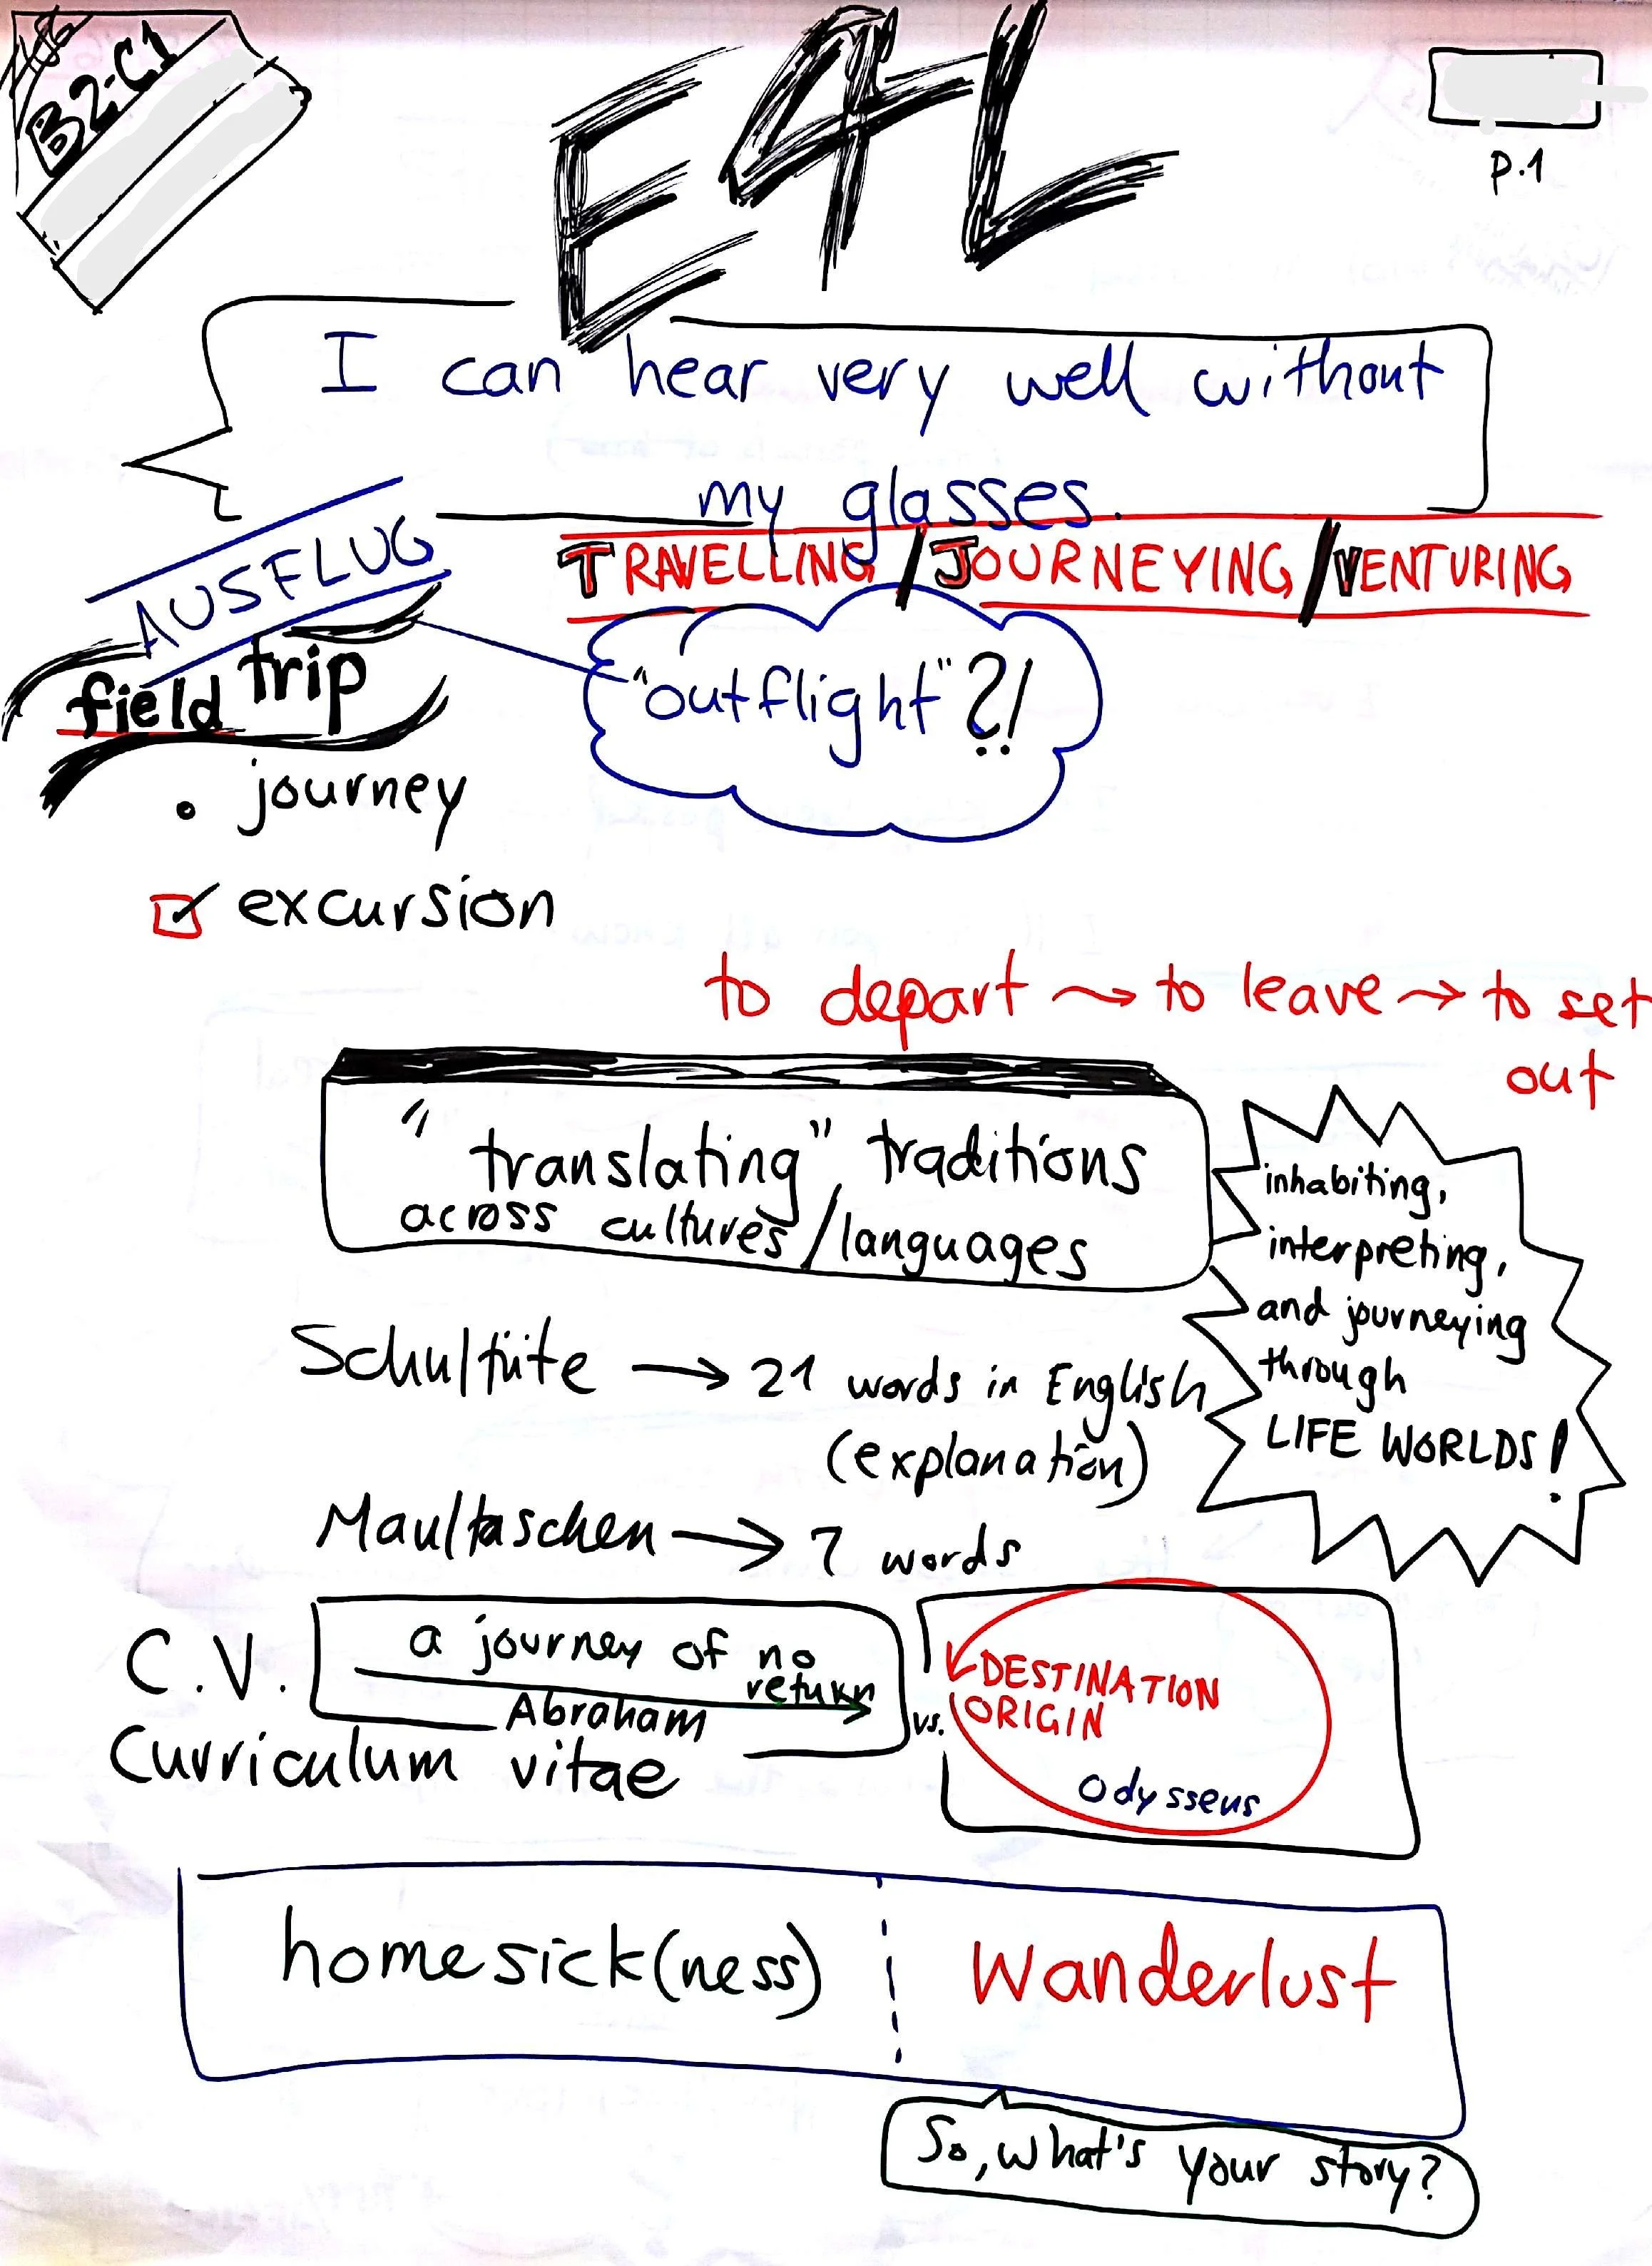 B2-C1
E4L
p.1
I can hear very well without
my glasses.
TRAVELLING / JOURNEYING / VENTURING
AUSFLUG
"outflight"?!
field trip
• journey
☑ excursion
to depart → to leave → to set
out
"translating" traditions
across cultures/languages
inhabiting,
interpreting,
and journeying
through
LIFE WORLDS!
Schultüte → 21 words in English
(explanation)
Maultaschen → 7 words
C.V.
Curriculum vitae
a journey of no
return
Abraham
vs.
DESTINATION
ORIGIN
Odysseus
homesick(ness)
Wanderlust
So, what's your story?